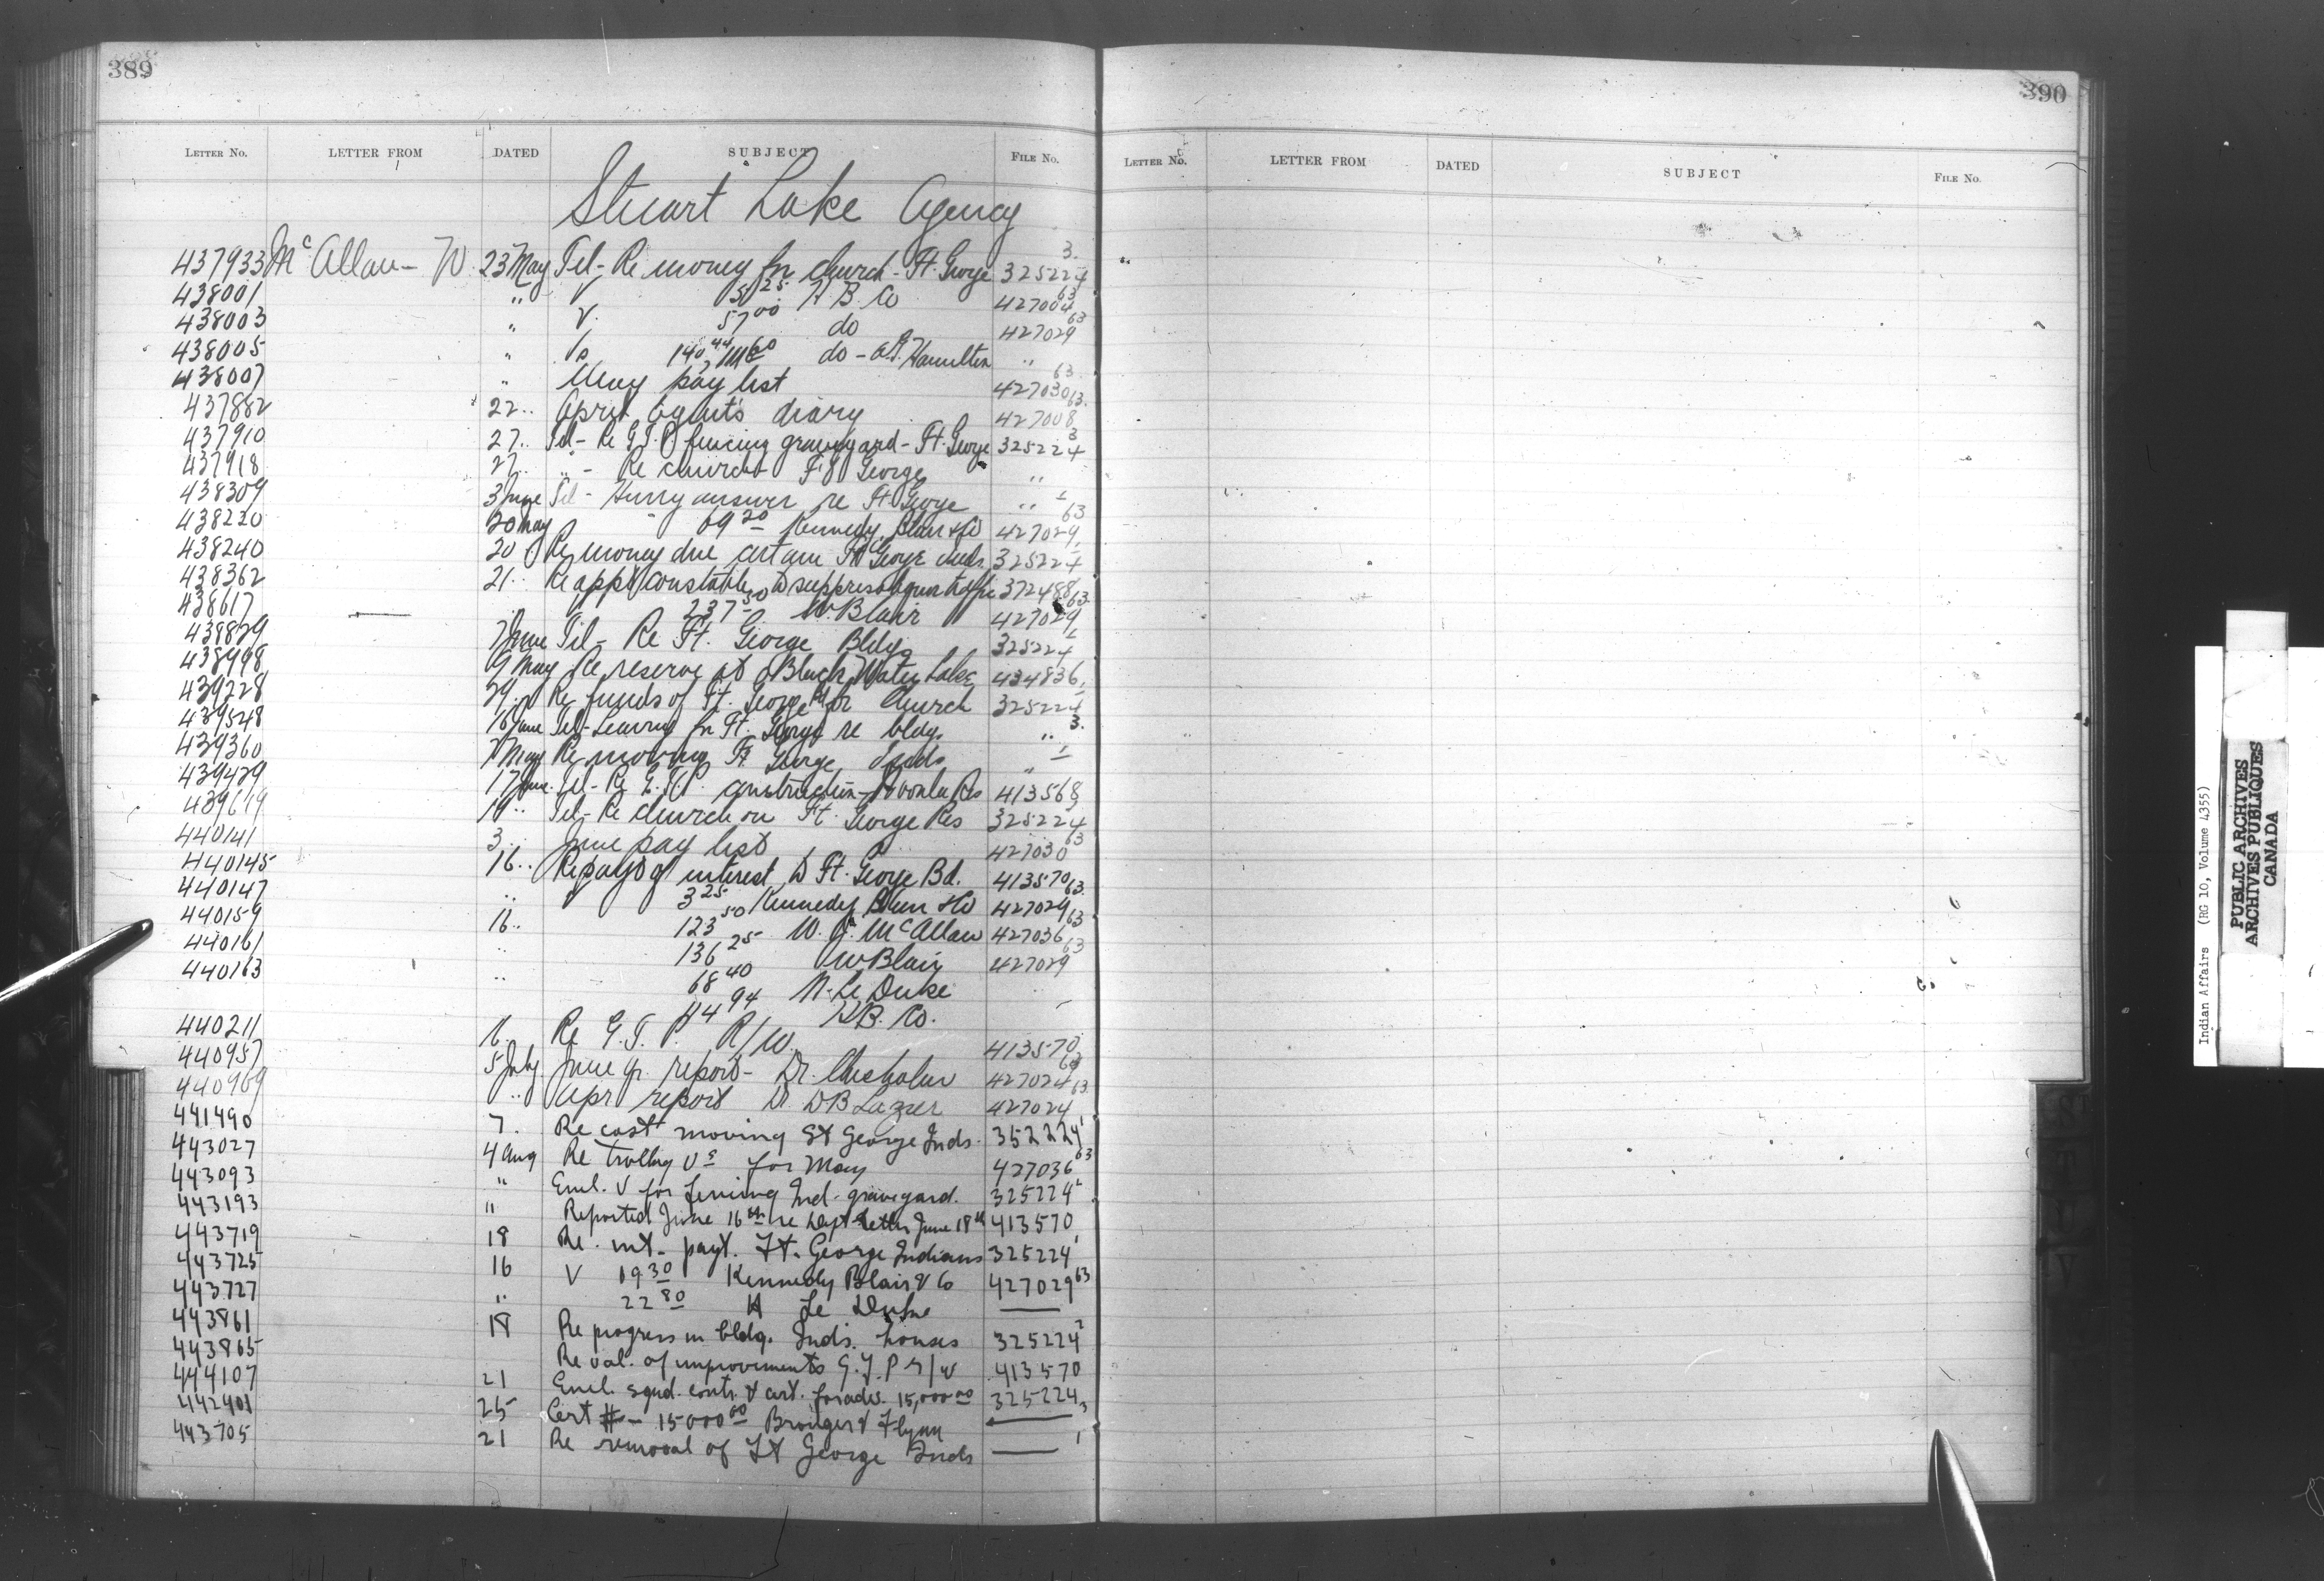 389
390
LETTER NO. LETTER FROM DATED SUBJECT FILE No.
LETTER No. LETTER FROM DATED SUBJECT FILE No.
Stuart Lake Agency
437933 McAllan - W 23 May Tel - Re money for church - Ft. George 325224 3.
438001 " V H B Co 427004 63
438003 " V. 57 00 do 427029 63
438005 " do - Hamilton "
438007 " May pay list 427030 63
437882 22 " April Agent's diary 427008 63.
437910 27 " Tel - Re G.T.P. fencing graveyard - Ft. George 325224 3
437918 27 " " - Re church Ft George "
438309 3 June Tel - Hurry answer re Ft George "
438220 20 May 69 20 Kennedy, Blair & Co 427029 63
438240 20 Re money due certain Ft George Inds. 325224
438362 21 " Re appt constable to suppress liquor traffic 372488
438617 237 50 W. Blair 427029 63
438829 7 June Tel - Re Ft. George Bldgs 325224
438998 9 May Re reserve at Black Water Lake 434836
439228 29 " Re funds of Ft. George Bd for Church 325224
439548 16 June Tel - Leaving for Ft. George re bldgs. " 3.
439360 7 May Re moving Ft George Inds "
439429 17 June Tel - Re G.T.P. construction - Res 413568
439619 19 " Tel - Re church on Ft. George Res 325224 3
440141 3 " June pay list 427030 63
440145 16 " Re payt of interest to Ft. George Bd. 413570
440147 " 3 25 Kennedy Blair & Co 427029 63
440159 16 " 123 50 W. J. McAllan 427036 63
440161 " 136 25 W Blair 427029 63
440163 " 68 40 N. Le Duke
44 94 H.B. Co.
440211 16 Re G.T.P. R/W. 413570
440957 5 July June qr. report - Dr. Chisholm 427024 63
440969 " Apr report Dr. D B Lazier 427024 63
441490 7. Re cost moving St George Inds. 352224 1
443027 4 Aug Re trolley Vs for May 427036 63
443093 " Encl. V for fencing Ind. graveyard. 325224
443193 " Reported June 16th re Dept letter June 18th 413570
443719 18 Re. int. payt. Ft. George Indians 325224 1
443725 16 V 19 30 Kennedy Blair & Co 427029 63
443727 " 22 80 Le Duke
443861 18 Re progress in bldg. Inds. houses 325224 2
443865 Re val. of improvements G.T.P r/w 413570
444107 21 Encl. sgnd. contr. & cert. for adv. 15,000 00 325224 3
442401 25 Cert # - 15000 00 Bronger & Flynn
443705 21 Re removal of Ft George Inds 1
Indian Affairs (RG 10, Volume 4355)
PUBLIC ARCHIVES
ARCHIVES PUBLIQUES
CANADA